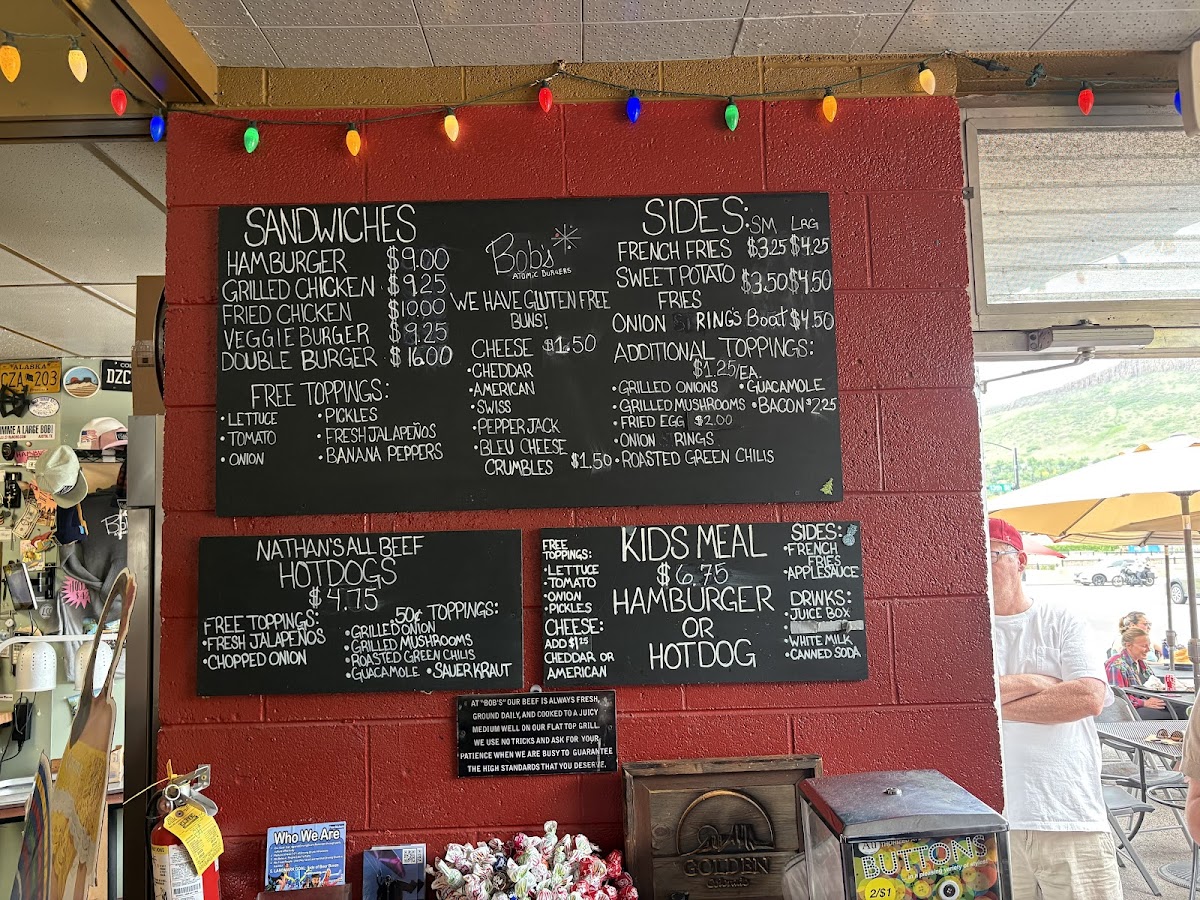 SANDWICHES
HAMBURGER $9.00
GRILLED CHICKEN $9.25
FRIED CHICKEN $10.00
VEGGIE BURGER $9.25
DOUBLE BURGER $16.00
FREE TOPPINGS:
• LETTUCE
• TOMATO
• ONION
• PICKLES
• FRESH JALAPEÑOS
• BANANA PEPPERS
Bob's
ATOMIC BURGERS
WE HAVE GLUTEN FREE
BUNS!
CHEESE $1.50
• CHEDDAR
• AMERICAN
• SWISS
• PEPPERJACK
• BLEU CHEESE
CRUMBLES $1.50
SIDES: SM LRG
FRENCH FRIES $3.25 $4.25
SWEET POTATO $3.50 $4.50
FRIES
ONION RINGS Boat $4.50
ADDITIONAL TOPPINGS:
$1.25/EA.
• GRILLED ONIONS • GUACAMOLE
• GRILLED MUSHROOMS • BACON $2.25
• FRIED EGG $2.00
• ONION RINGS
• ROASTED GREEN CHILIS
NATHAN'S ALL BEEF
HOTDOGS
$4.75
FREE TOPPINGS:
• FRESH JALAPEÑOS
• CHOPPED ONION
50¢ TOPPINGS:
• GRILLED ONION
• GRILLED MUSHROOMS
• ROASTED GREEN CHILIS
• GUACAMOLE • SAUERKRAUT
FREE
TOPPINGS:
• LETTUCE
• TOMATO
• ONION
• PICKLES
CHEESE:
ADD $1.25
CHEDDAR OR
AMERICAN
KIDS MEAL
$6.75
HAMBURGER
OR
HOTDOG
SIDES:
• FRENCH
FRIES
• APPLESAUCE
DRINKS:
• JUICE BOX
• WHITE MILK
• CANNED SODA
AT "BOB'S" OUR BEEF IS ALWAYS FRESH,
GROUND DAILY, AND COOKED TO A JUICY
MEDIUM WELL ON OUR FLAT TOP GRILL.
WE USE NO TRICKS AND ASK FOR YOUR
PATIENCE WHEN WE ARE BUSY TO GUARANTEE
THE HIGH STANDARDS THAT YOU DESERVE.
ALASKA
CZA 203
DZC
GIMME A LARGE BOB!
Who We Are
GOLDEN
Colorado
BUTTONS
2/$1